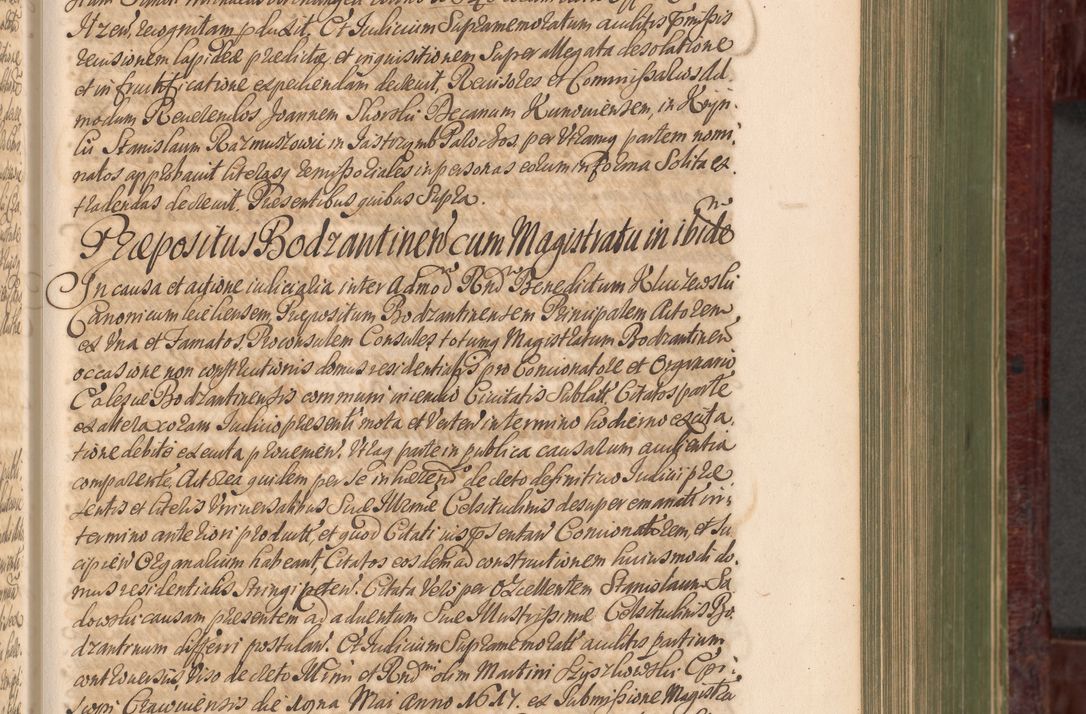 Itzen, recognitam produxit. Et Iudicium Supramemoratum auditis præmissis
revisionem lapideæ predictæ et inquisitionem super allegata desolatione
et in fructificatione expediendam decrevit, Revisores et Commissarios Ad
modum Reverendos Joannem Skorski Decanum Kunoviensem, in Kryn
ki Stanislaum Razmusowic in Jastrzymb Parochos, per Utramq partem nomi
natos approbavit literasq remissoriales in personas eorum in Forma Solita ex
tradendas decrevit. Præsentibus quibus Supra.
Præpositus Bodzantinen cum Magistratu in ibidem
In causa et actione iudicialia inter Admod Rnd Benedictum Kluzewski
Canonicum Kielcensem Præpositum Bodzantinensem Principalem Actorem
ex Una et Famatos, Proconsulem Consules totumq Magistratum Bodzantinen
occasione non constructionis domus residentialis pro Concionatore et Organario
Ecclesiæ Bodzantinensis communi incendio Civitatis Sublatæ, Citatos parte
ex altera coram Iudicio presenti mota et Verten in termino hodierno ex cita
tione debite executa provenien. Utraq parte in publica causarum audientia
comparente, Actorea quidem per se inhærend decreto definitivo Iudicii præ
sentis et literis Universalibus Suæ Illrmæ Celsitudinis desuper emanatis in
termino anteriori productis, et quod Citati ius præsentan Concionatorem, et su
scipien Organarium habeant, Citatos eosdem ad constructionem huiusmodi do
mus residentialis Stringi peten. Citata vero per Excellentem Stanislaum Sa
dowski causam presentem ad aduentum Suæ Illustrissimæ Celsitudinis Bo
dzantinum differri postulan. Et Iudicium Supramemorat auditis partium
controversiis, Viso decreto Illrmi et Rndmi olim Martini Szyszkowski Epi
scopi Cracoviensis die Mai Anno 1617. ex Submissione Magistra